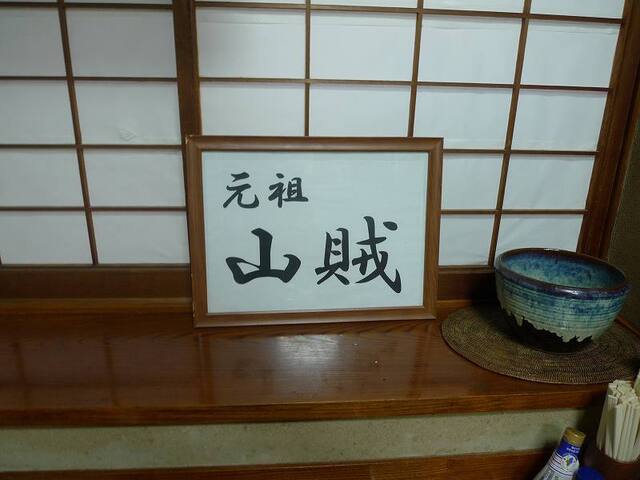 元祖
山賊